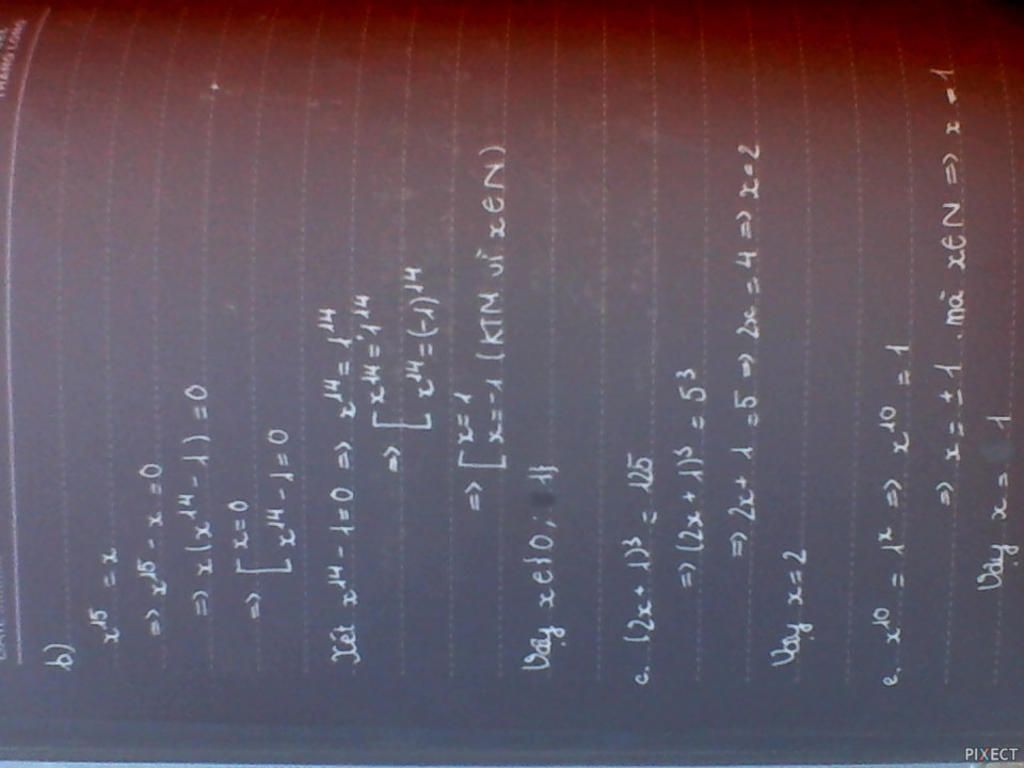 b)
x¹⁵ = x
=> x¹⁵ - x = 0
=> x(x¹⁴ - 1) = 0
=> [ x = 0
[ x¹⁴ - 1 = 0
Xét x¹⁴ - 1 = 0 => x¹⁴ = 1¹⁴
=> [ x¹⁴ = 1¹⁴
[ x¹⁴ = (-1)¹⁴
=> [ x = 1
[ x = -1 (KTM vì x∈N)
Vậy x∈{0; 1}
c. (2x + 1)³ = 125
=> (2x + 1)³ = 5³
=> 2x + 1 = 5 => 2x = 4 => x = 2
Vậy x = 2
e. x¹⁰ = 1ˣ => x¹⁰ = 1
=> x = ±1 . mà x∈N => x = 1
Vậy x = 1
PIXECT